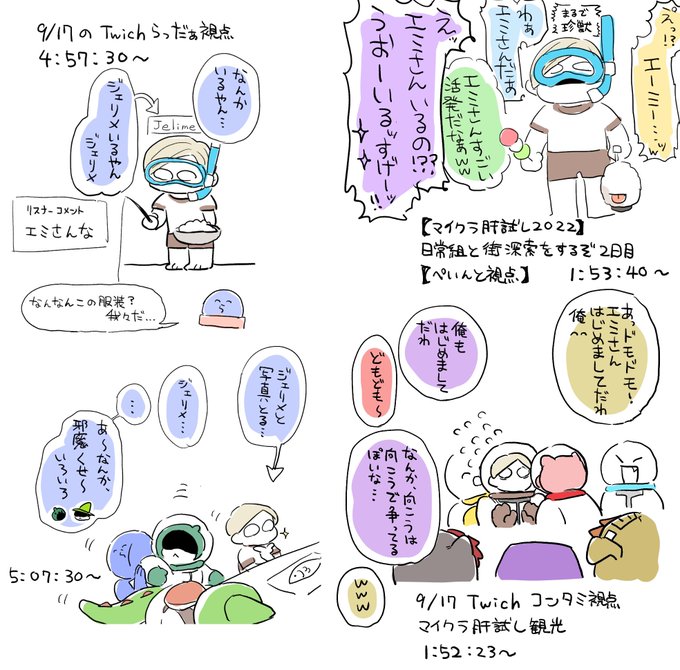 9/17の Twichらっだぁ視点
4:57:30～
なんか
いるやん…
ジェリメいるやん
ジェリメ
Jelime
リスナーコメント
エミさんな
なんなんこの服装?
我々だ…
えッ
エミさんいるの!??
うおーいるッすげーッ!!
わぁ
エミさんだぁ
エミさんすっごい
活発だなぁww
まるで
珍獣
えっ!?
エーミー…ッw
【マイクラ肝試し2022】
日常組と街深索をするぞ2日目
【ぺいんと視点】
1:53:40～
ジェリメと
写真とる…
ジェリメ…
…
あ～なんか、
邪魔くせ～
いろいろ
5:07:30～
あっドモドモ～
エミさん
はじめましてだわ
俺
俺も
はじめまして
だわ
どもども～
なんか、向こうは
向こうで争ってる
ぽいな…
www
9/17 Twich コンタミ視点
マイクラ肝試し観光
1:52:23～